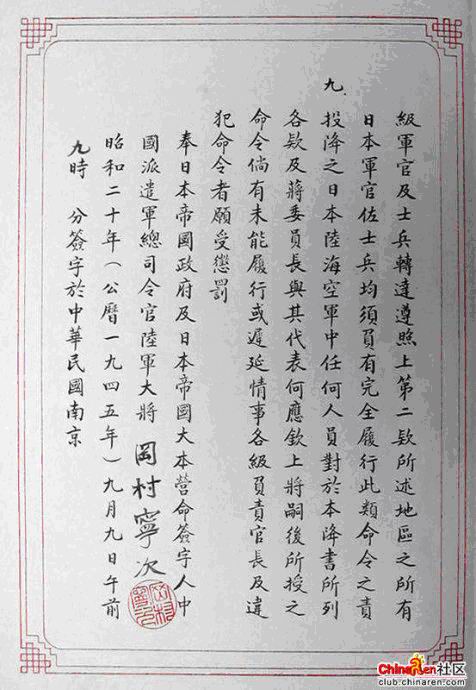 級軍官及士兵轉達遵照上第二欵所述地區之所有
日本軍官佐士兵均須負有完全履行此類命令之責
九、投降之日本陸海空軍中任何人員對於本降書所列
各欵及蔣委員長與其代表何應欽上將嗣後所授之
命令倘有未能履行或遲延情事各級負責官長及違
犯命令者願受懲罰
奉日本帝國政府及日本帝國大本營命簽字人中
國派遣軍總司令官陸軍大將 岡村寧次
昭和二十年(公曆一九四五年)九月九日午前
九時 分簽字於中華民國南京
ChinaRen社区
club.chinaren.com